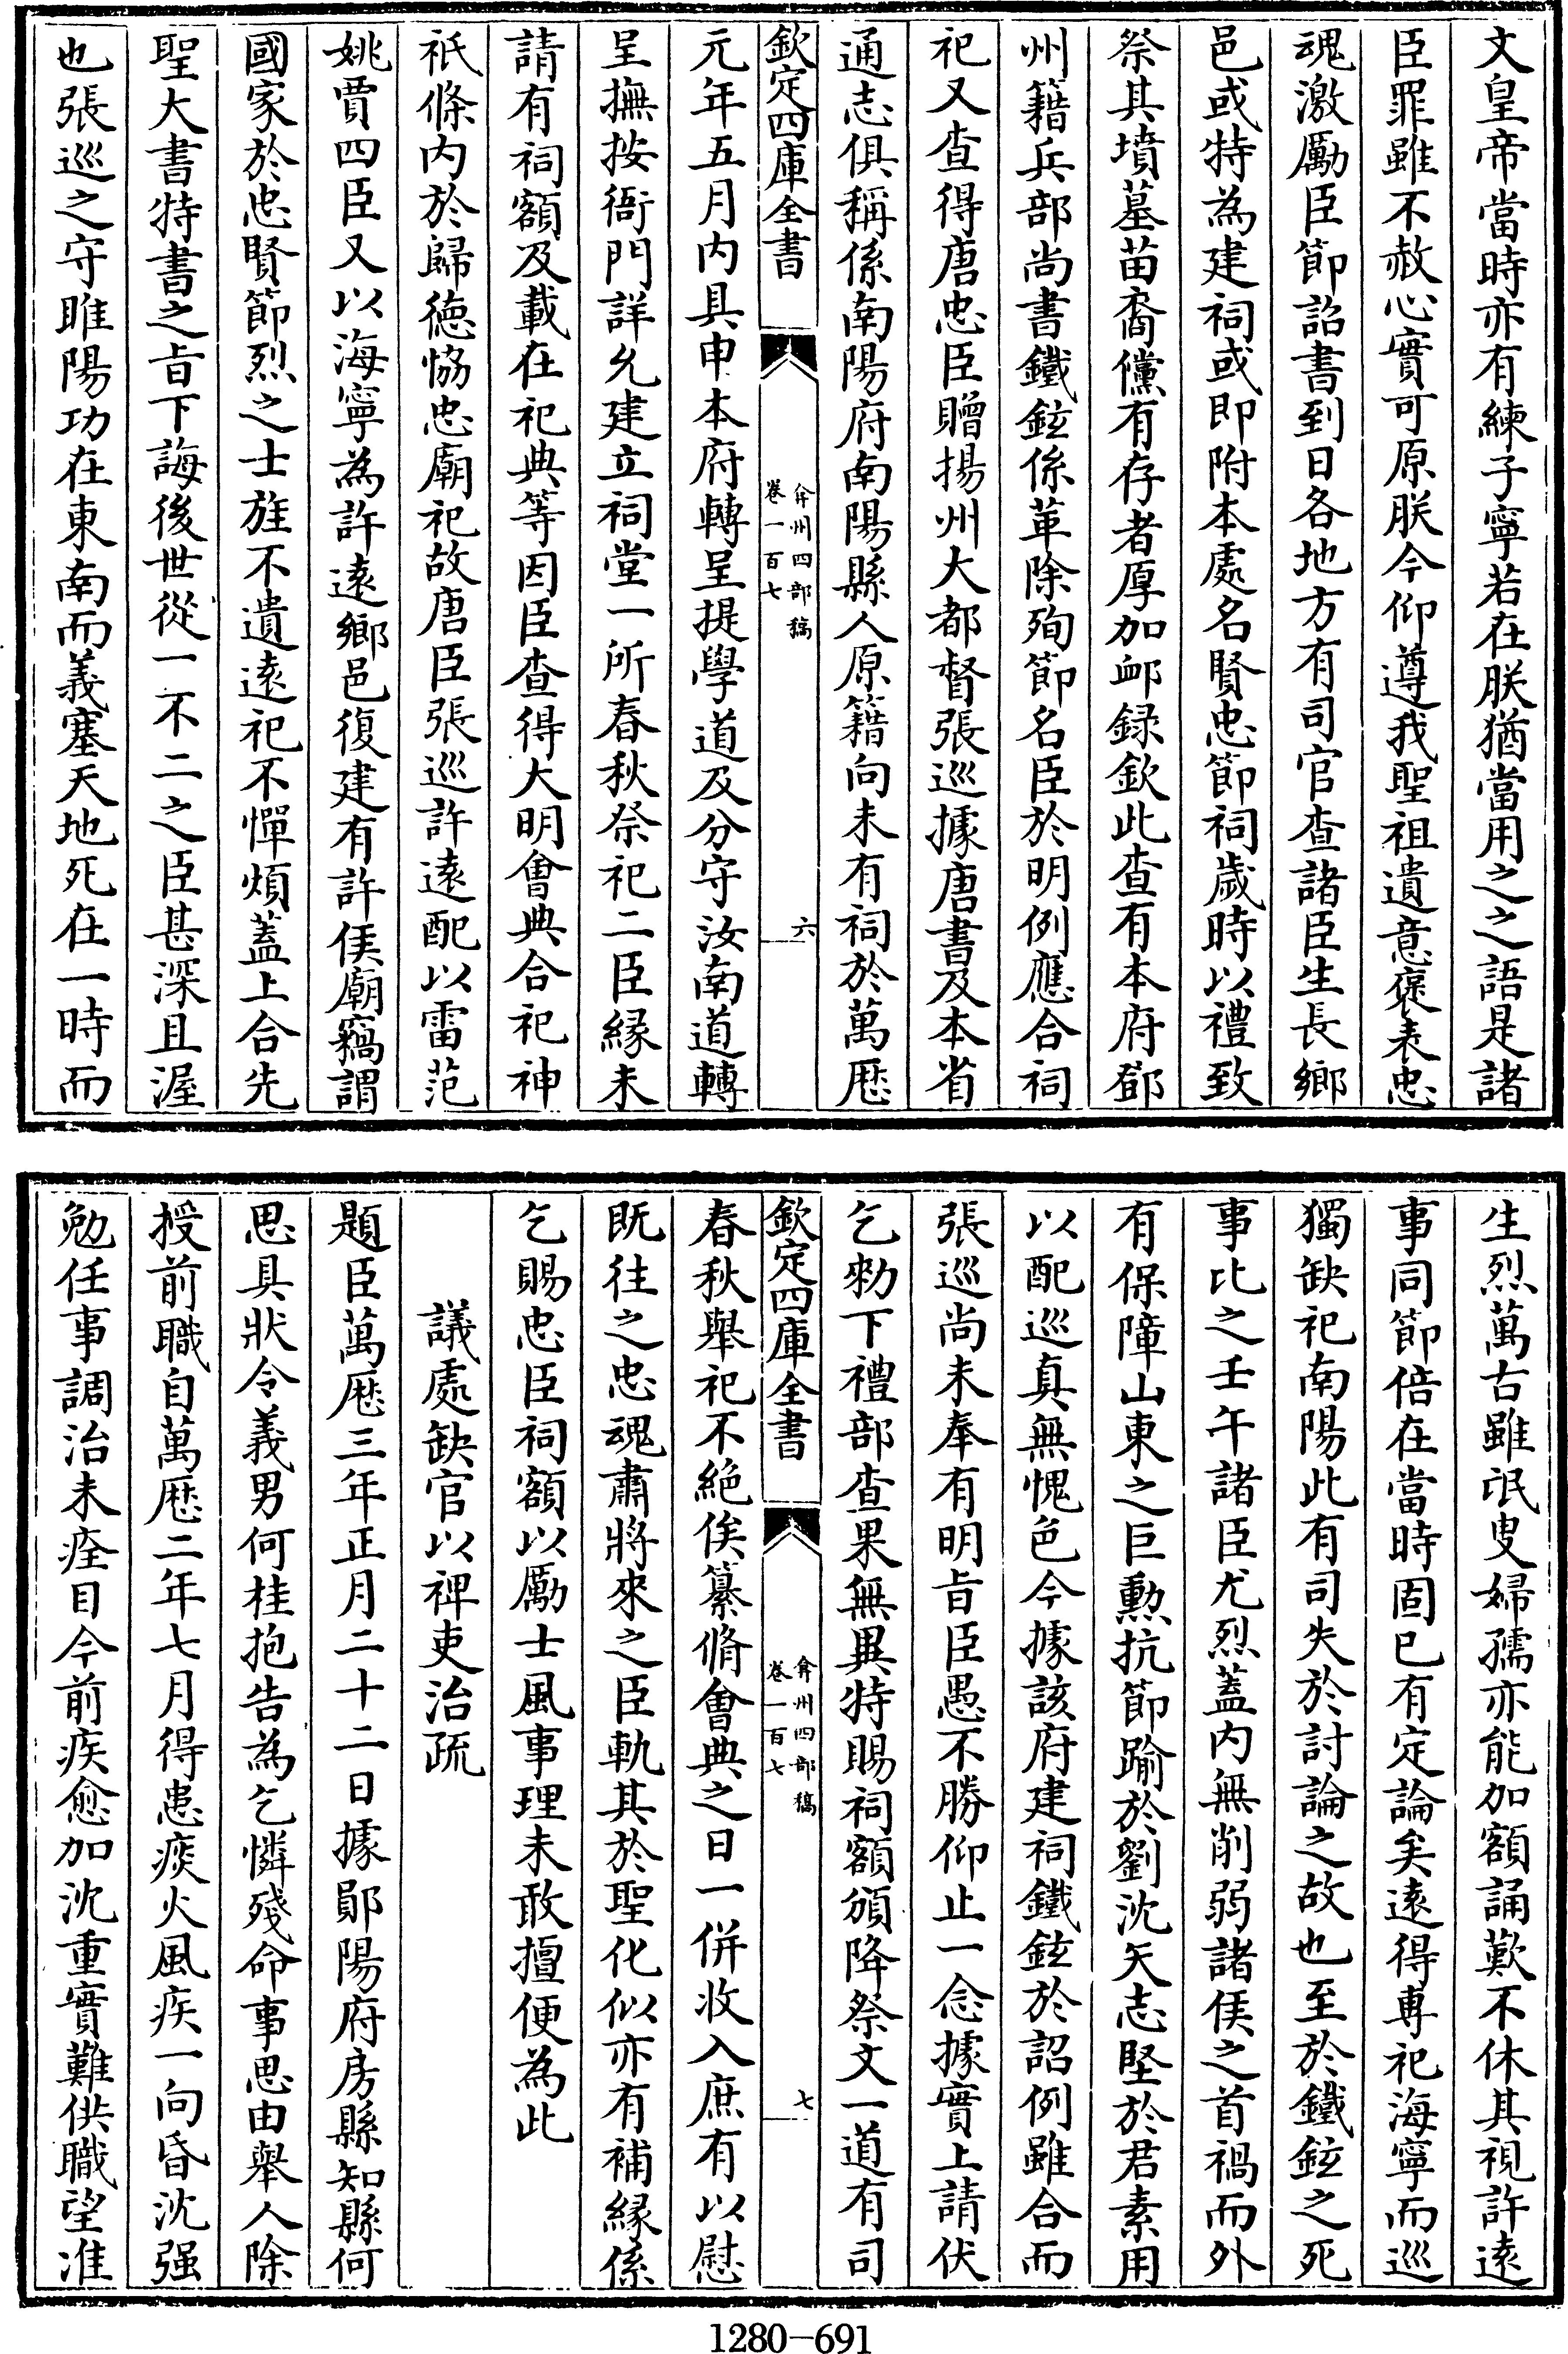 文皇帝當時亦有練子寧若在朕猶當用之之語是諸
臣罪雖不赦心實可原朕今仰遵我聖祖遺意褒表忠
魂激勵臣節詔書到日各地方有司官查諸臣生長鄉
邑或特為建祠或即附本處名賢忠節祠歲時以禮致
祭其墳墓苗裔儻有存者厚加䘏録欽此查有本府鄧
州籍兵部尚書鐵鉉係革除殉節名臣於明例應合祠
祀又查得唐忠臣贈揚州大都督張巡據唐書及本省
通志俱稱係南陽府南陽縣人原籍向未有祠於萬厯
欽定四庫全書
弇州四部稿
卷一百七
六
元年五月内具申本府轉呈提學道及分守汝南道轉
呈撫按衙門詳允建立祠堂一所春秋祭祀二臣縁未
請有祠額及載在祀典等因臣查得大明會典合祀神
祇條内於歸徳恊忠廟祀故唐臣張巡許遠配以雷范
姚賈四臣又以海寧為許遠鄉邑復建有許侯廟竊謂
國家於忠賢節烈之士旌不遺遠祀不憚煩蓋上合先
聖大書特書之旨下誨後世從一不二之臣甚深且渥
也張巡之守睢陽功在東南而義塞天地死在一時而
生烈萬古雖氓叟婦孺亦能加額誦歎不休其視許遠
事同節倍在當時固已有定論矣遠得専祀海寧而巡
獨缺祀南陽此有司失於討論之故也至於鐵鉉之死
事比之壬午諸臣尤烈蓋内無削弱諸侯之首禍而外
有保障山東之巨勲抗節踰於劉沈矢志堅於君素用
以配巡真無愧色今據該府建祠鐵鉉於詔例雖合而
張巡尚未奉有明旨臣愚不勝仰止一念據實上請伏
乞勑下禮部查果無異特賜祠額頒降祭文一道有司
欽定四庫全書
弇州四部稿
卷一百七
七
春秋舉祀不絶俟纂脩會典之日一併收入庶有以慰
既往之忠魂肅將來之臣軌其於聖化似亦有補縁係
乞賜忠臣祠額以勵士風事理未敢擅便為此
議處缺官以裨吏治疏
題臣萬厯三年正月二十二日據鄖陽府房縣知縣何
思具狀令義男何桂抱告為乞憐殘命事思由舉人除
授前職自萬厯二年七月得患痰火風疾一向昏沈强
勉任事調治未痊目今前疾愈加沈重實難供職望准
1280-691